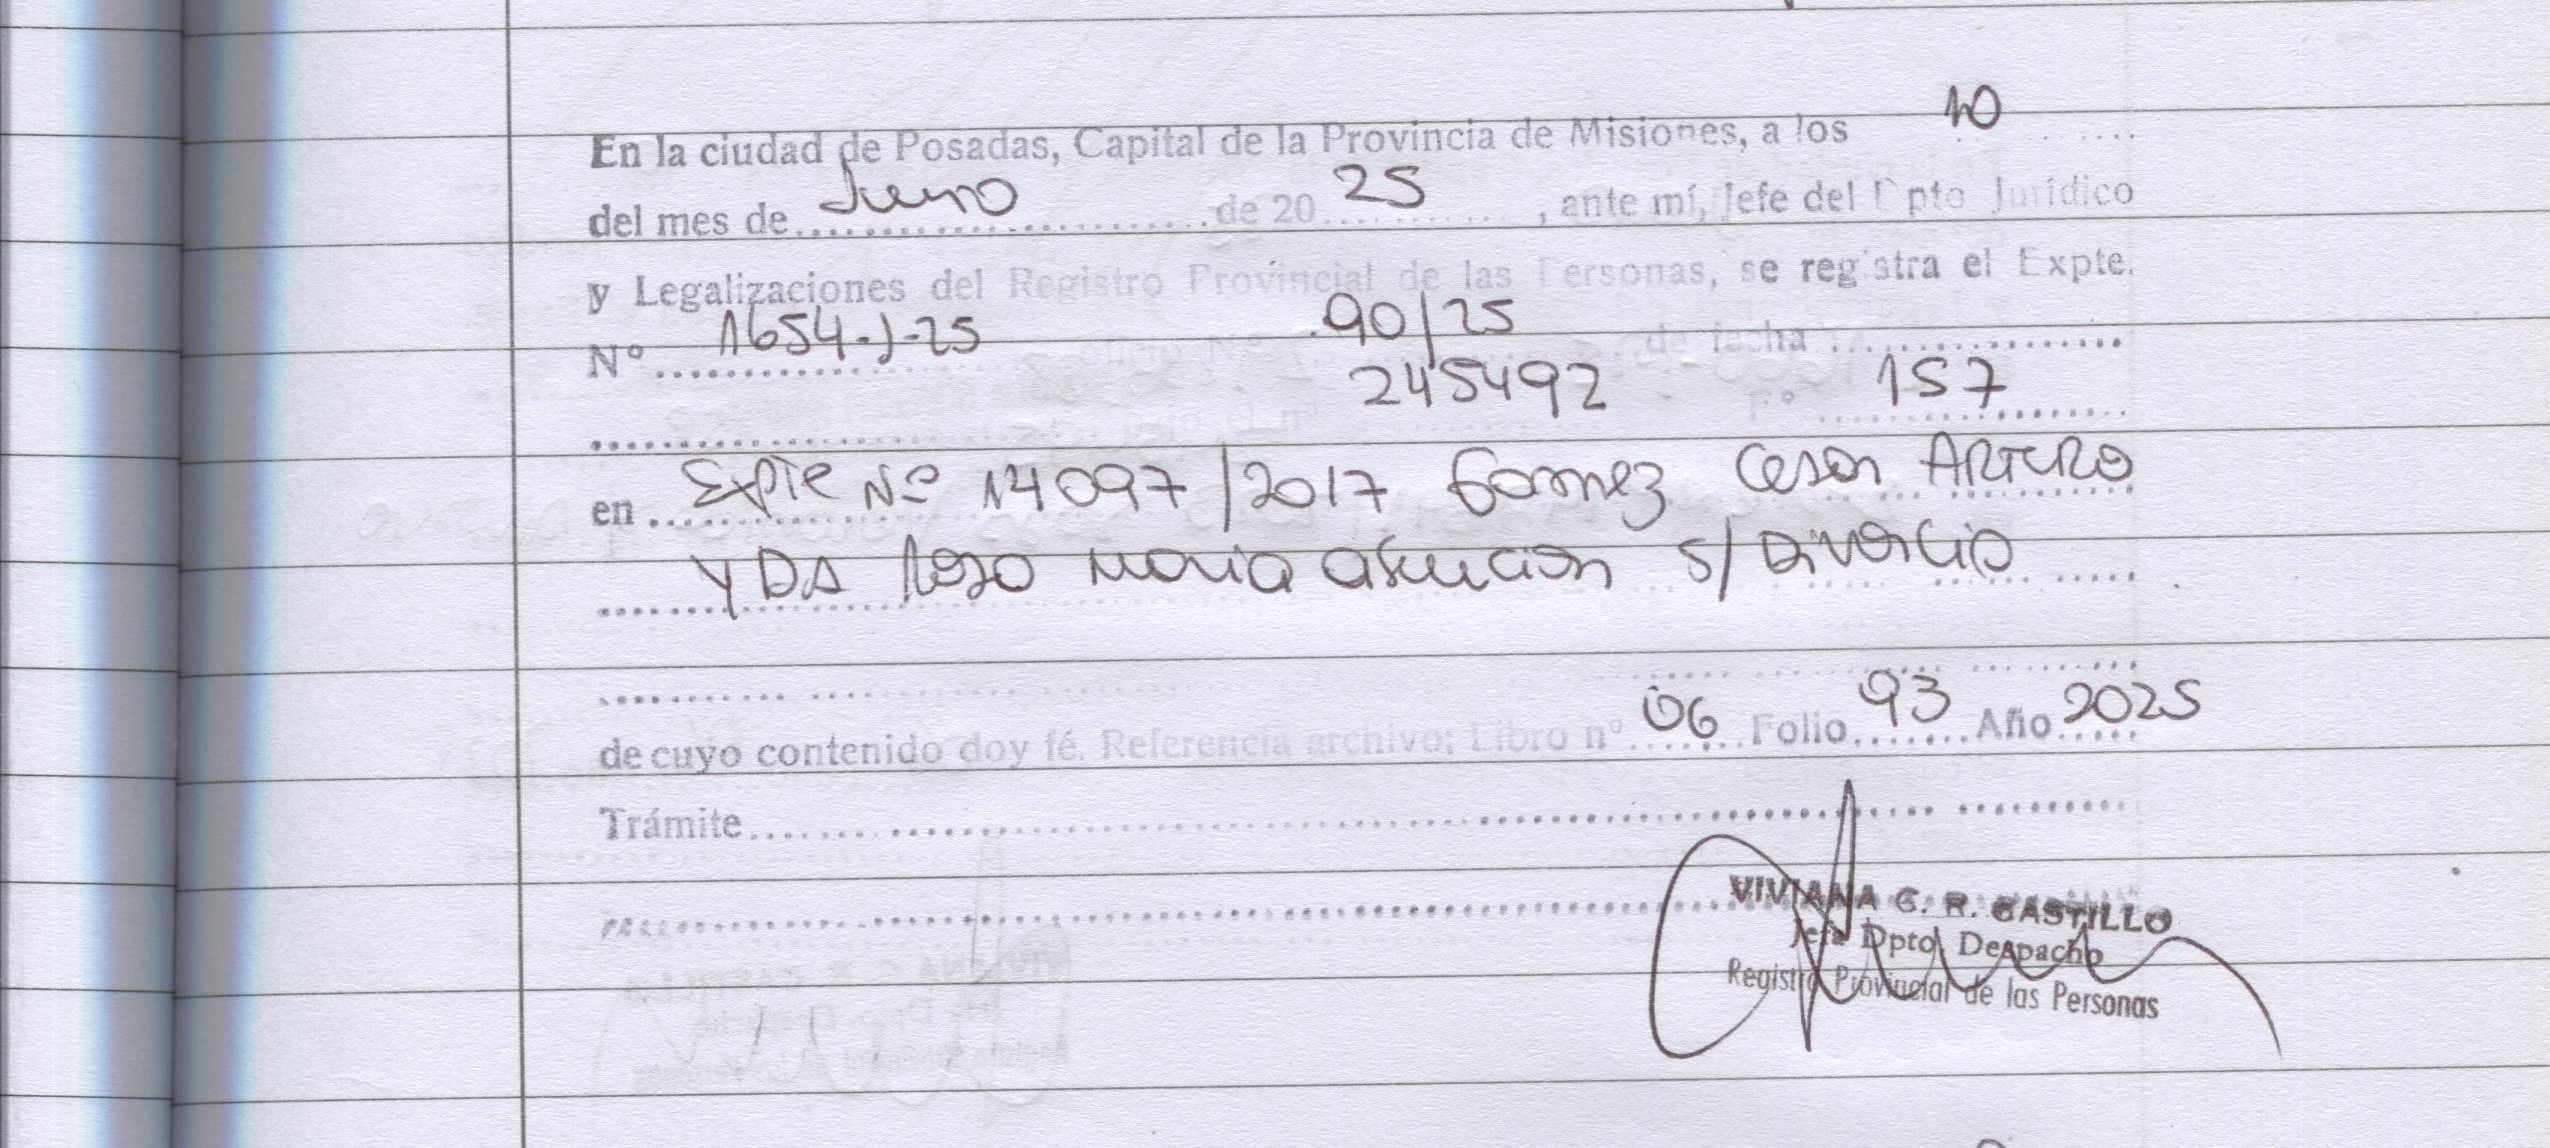 En la ciudad de Posadas, Capital de la Provincia de Misiones, a los 10
del mes de Junio de 20 25, ante mí, Jefe del Dpto Jurídico
y Legalizaciones del Registro Provincial de las Personas, se registra el Expte.
Nº 1654-J-25 90/25 de fecha
245492 Fº 157
en Expte Nº 14097/2017 Gomez Cesar ARTURO
Y DA Roso Maria Asuncion S/ Divorcio
de cuyo contenido doy fé. Referencia archivo; Libro nº 06 Folio 93 Año 2025
Trámite
VIVIANA C. R. CASTILLO
Jefa Dpto. Despacho
Registro Provincial de las Personas